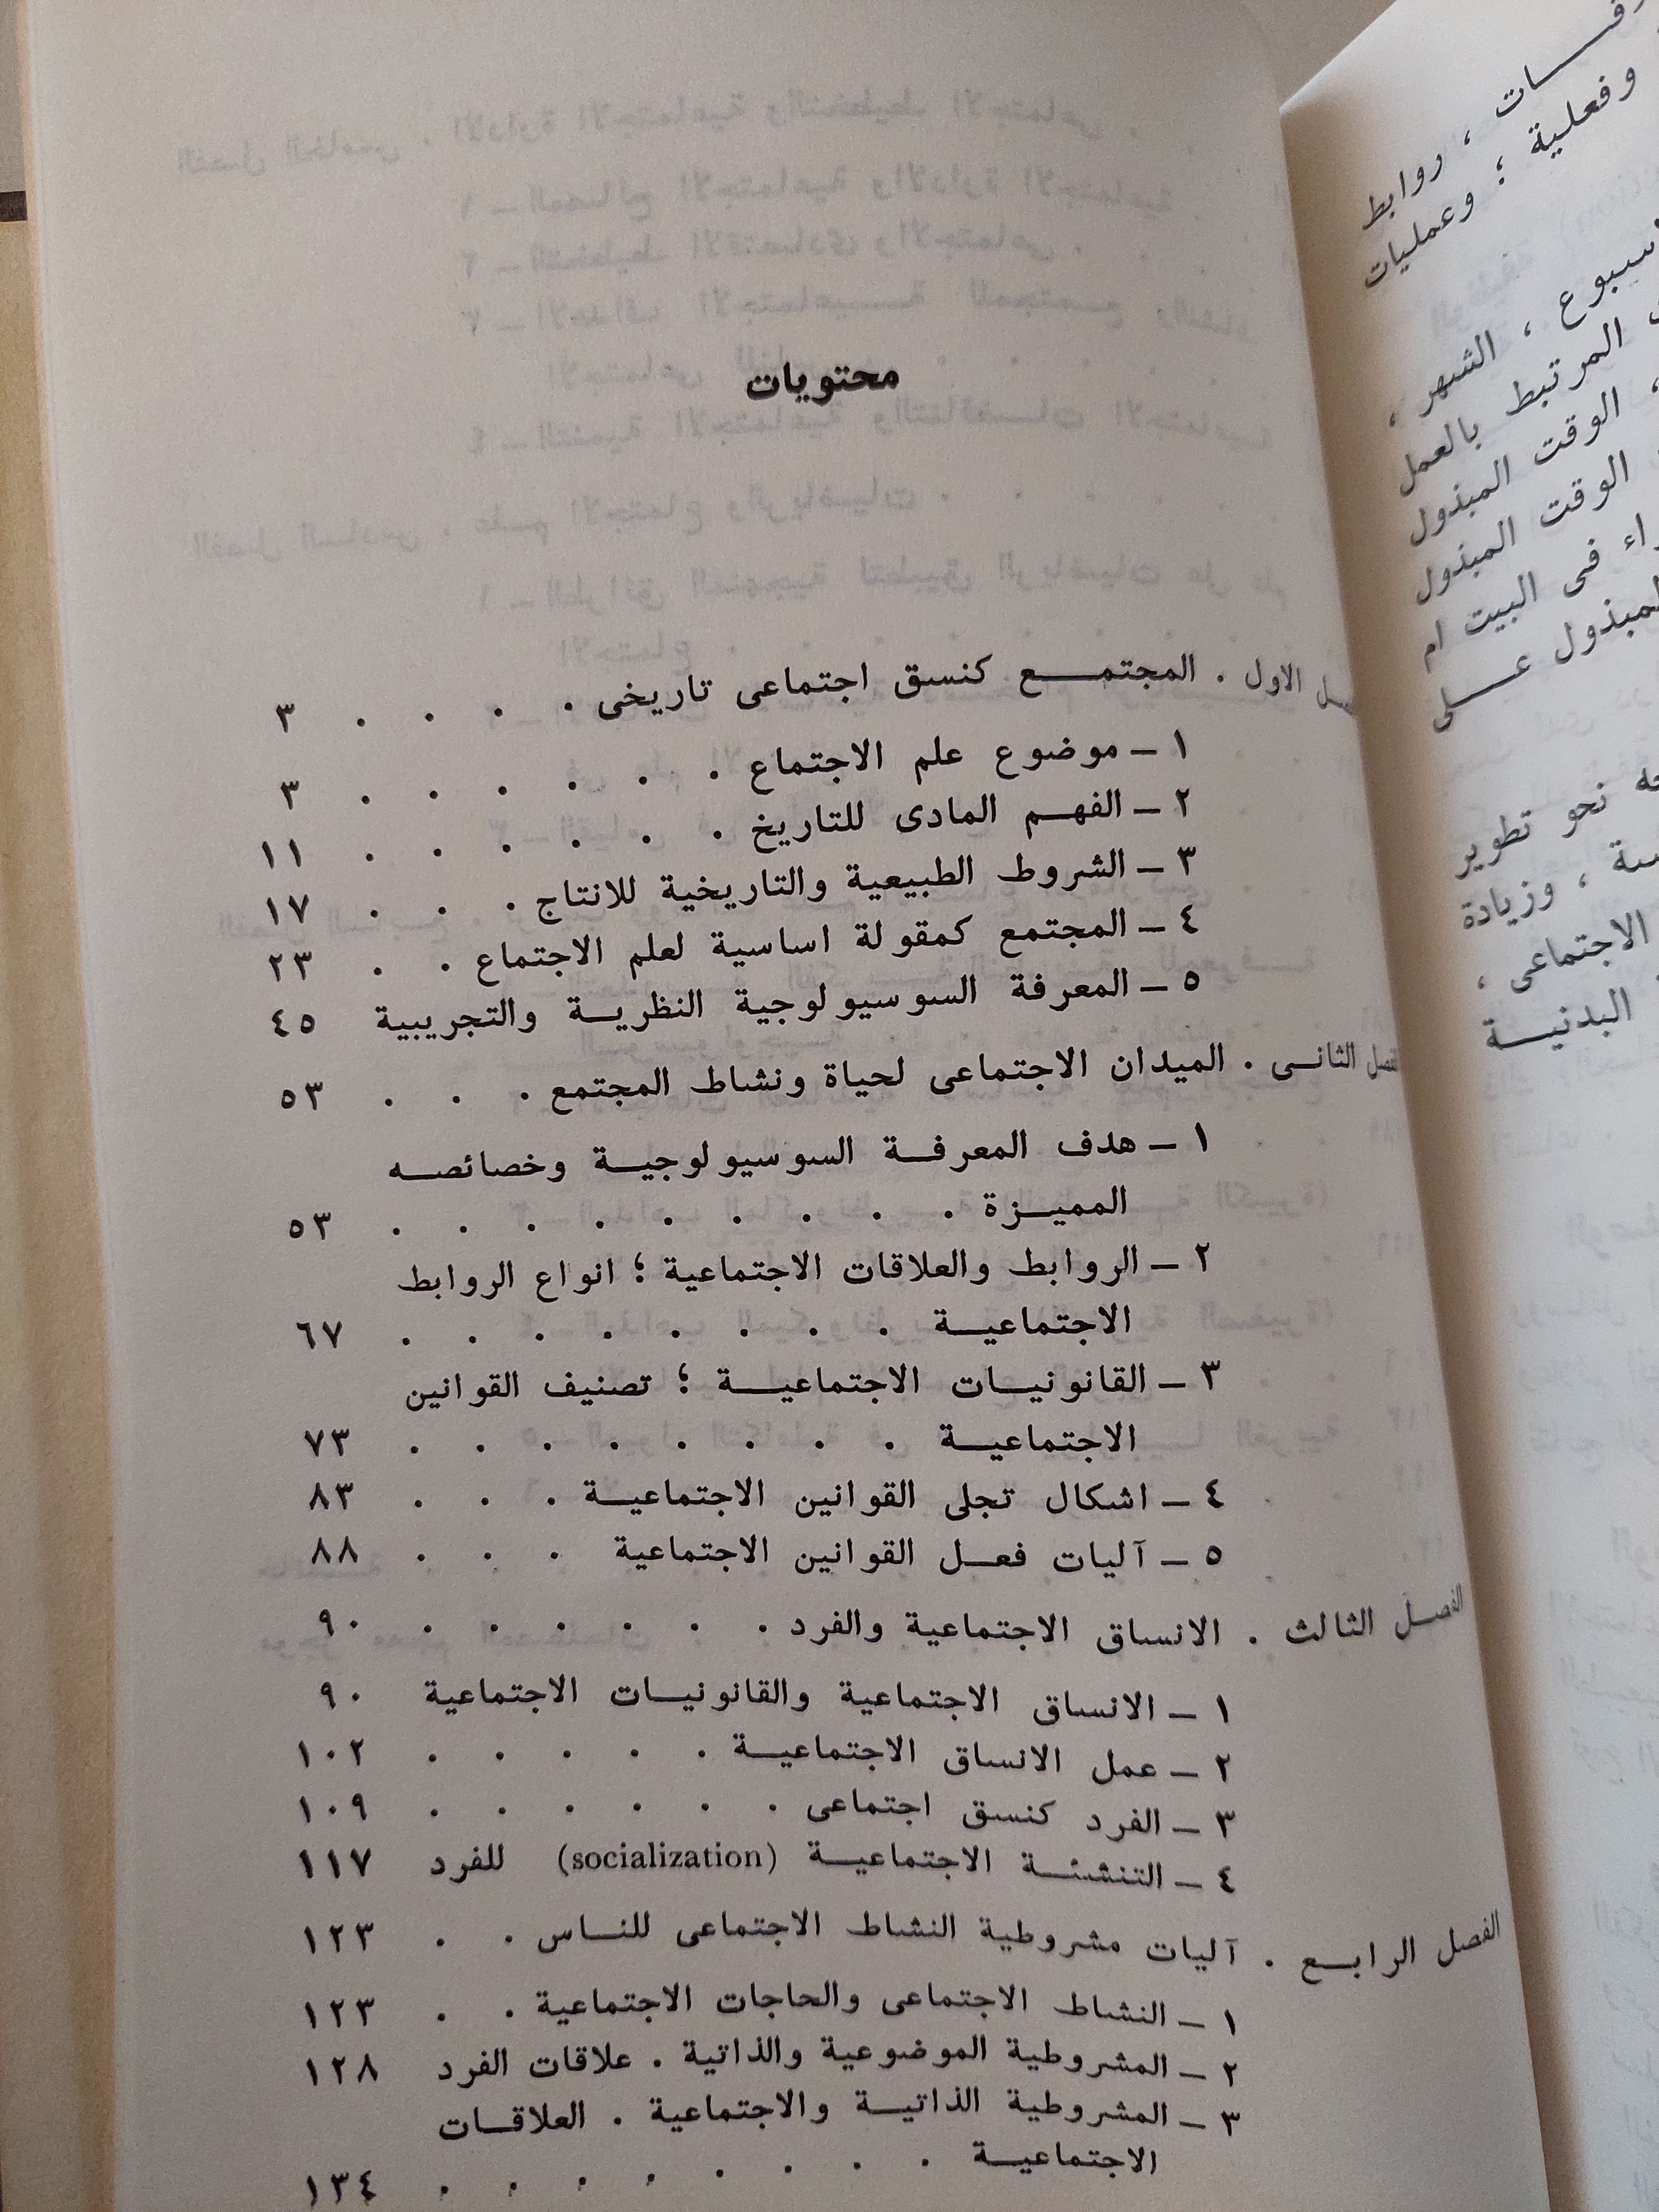 محتويات
الاول . المجتمــع كنسق اجتماعى تاريخى . . . . ٣
١ – موضوع علم الاجتماع . . . . . . ٣
٢ – الفهم المادى للتاريخ . . . . . . ١١
٣ – الشروط الطبيعية والتاريخية للانتاج . . . ١٧
٤ – المجتمع كمقولة اساسية لعلم الاجتماع . . ٢٣
٥ – المعرفة السوسيولوجية النظريــة والتجريبية ٤٥
الثانــى . الميدان الاجتماعى لحياة ونشاط المجتمع . . . ٥٣
١ – هدف المعرفــة السوسيولوجيــة وخصائصــه
المميــزة . . . . . . . . . ٥٣
٢ – الروابط والعلاقات الاجتماعية ؛ انواع الروابط
الاجتماعيــة . . . . . . . . ٦٧
٣ – القانونيــات الاجتماعيــة ؛ تصنيف القوانين
الاجتماعيــة . . . . . . . . ٧٣
٤ – اشكال تجلى القوانين الاجتماعيــة . . . ٨٣
٥ – آليات فعــل القوانين الاجتماعية . . . ٨٨
الفصــل الثالث . الانساق الاجتماعية والفرد . . . . . . ٩٠
١ – الانساق الاجتماعية والقانونيــات الاجتماعية ٩٠
٢ – عمل الانساق الاجتماعيــة . . . . . ١٠٢
٣ – الفرد كنسق اجتماعى . . . . . . ١٠٩
٤ – التنشئــة الاجتماعيــة (socialization) للفرد ١١٧
الفصل الرابــع . آليات مشروطية النشاط الاجتماعى للنــاس . . ١٢٣
١ – النشاط الاجتماعى والحاجات الاجتماعية . . ١٢٣
٢ – المشروطية الموضوعية والذاتية . علاقات الفرد ١٢٨
٣ – المشروطية الذاتيــة والاجتماعية . العلاقــات
الاجتماعيــة . . . . . . . . ١٣٤
، روابط
وفعلية ؛ وعمليات
، الشهر ،
المرتبط بالعمل
، الوقت المبذول
الوقت المبذول
فى البيت ام
عــــلى
نحو تطوير
، وزيادة
الاجتماعى ،
البدنيــة